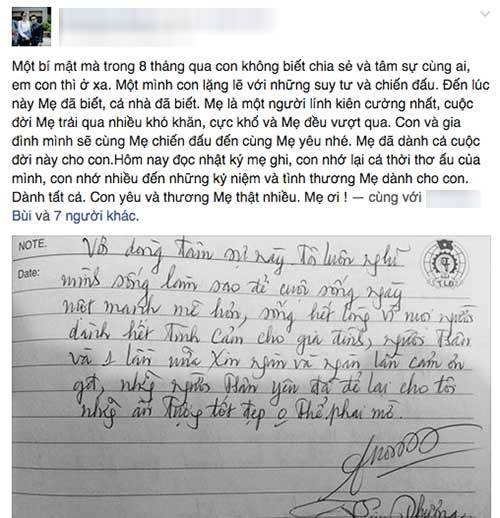 Một bí mật mà trong 8 tháng qua con không biết chia sẻ và tâm sự cùng ai,
em con thì ở xa. Một mình con lặng lẽ với những suy tư và chiến đấu. Đến lúc
này Mẹ đã biết, cả nhà đã biết. Mẹ là một người lính kiên cường nhất, cuộc
đời Mẹ trải qua nhiều khó khăn, cực khổ và Mẹ đều vượt qua. Con và gia
đình mình sẽ cùng Mẹ chiến đấu đến cùng Mẹ yêu nhé. Mẹ đã dành cả cuộc
đời này cho con.Hôm nay đọc nhật ký mẹ ghi, con nhớ lại cả thời thơ ấu của
mình, con nhớ nhiều đến những kỷ niệm và tình thương Mẹ dành cho con.
Dành tất cả. Con yêu và thương Mẹ thật nhiều. Mẹ ơi ! — cùng với
Bùi và 7 người khác.
NOTE.
Với dòng tâm sự này tô luôn nghĩ
Date:
mình sống làm sao để cuộc sống ngày
một mạnh mẽ hơn, sống hết lòng vì mọi người
dành hết tình cảm cho gia đình, người thân
và 1 lần nữa xin ngàn và ngàn lần cảm ơn
gđ, những người thân yêu đã để lại cho tô
những ấn tượng tốt đẹp o thể phai mờ.
Phương